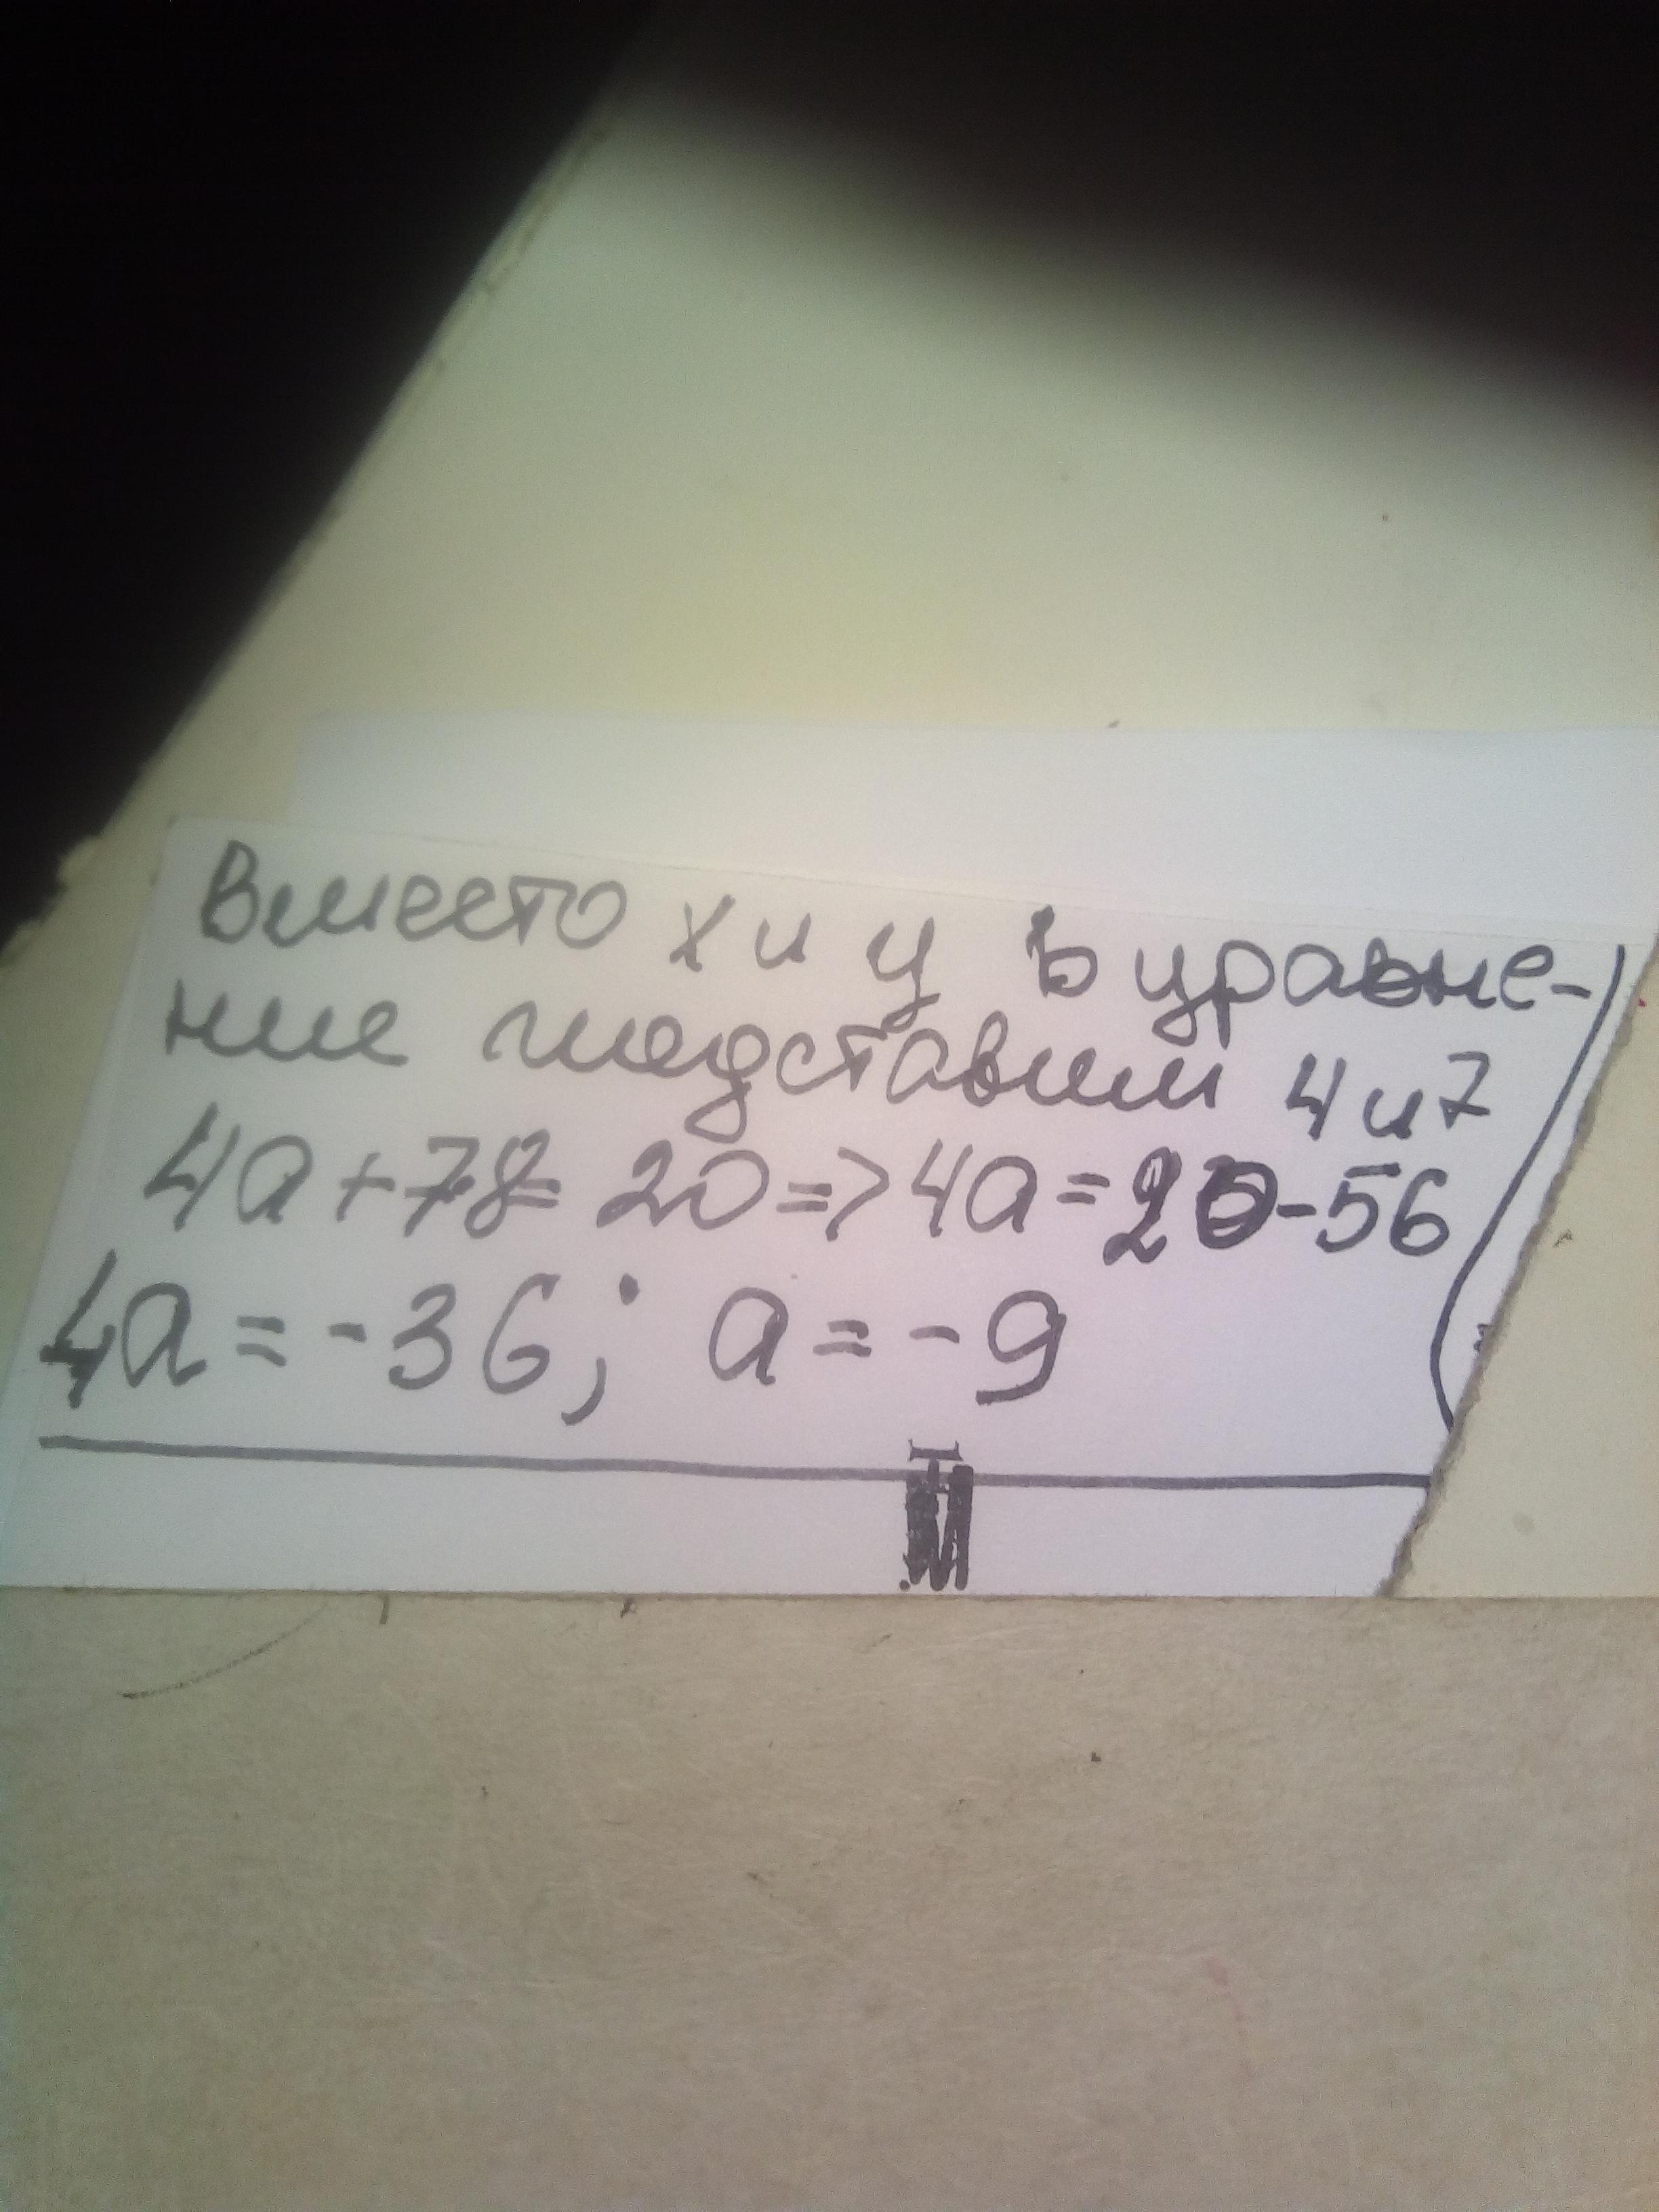 Вместо х и у в уравне-
ние подставим 4 и 7
4а+7·8= 20=>4а=20-56
4а=-36; а=-9